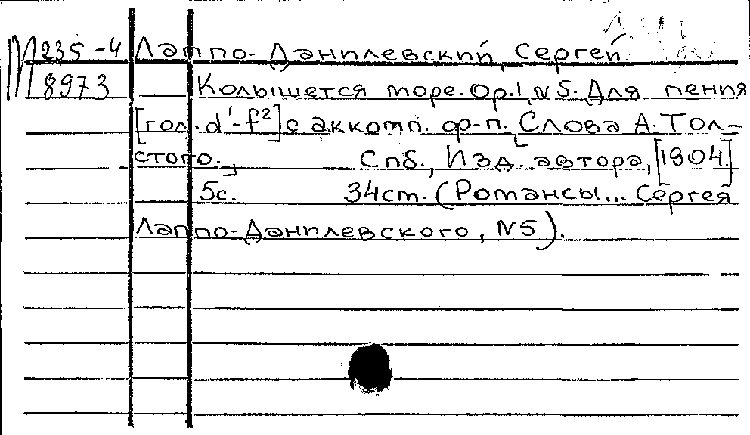 М 235-4 Лаппо-Данилевский, Сергей
8973 Колышется море. Ор.1, N5. Для пения
[гол. d¹-f²] с аккомп. ф-п. [Слова А. Тол-
стого.] Спб., Изд. автора, [1904]
5с. 34см. (Романсы... Сергея
Лаппо-Данилевского, N5).